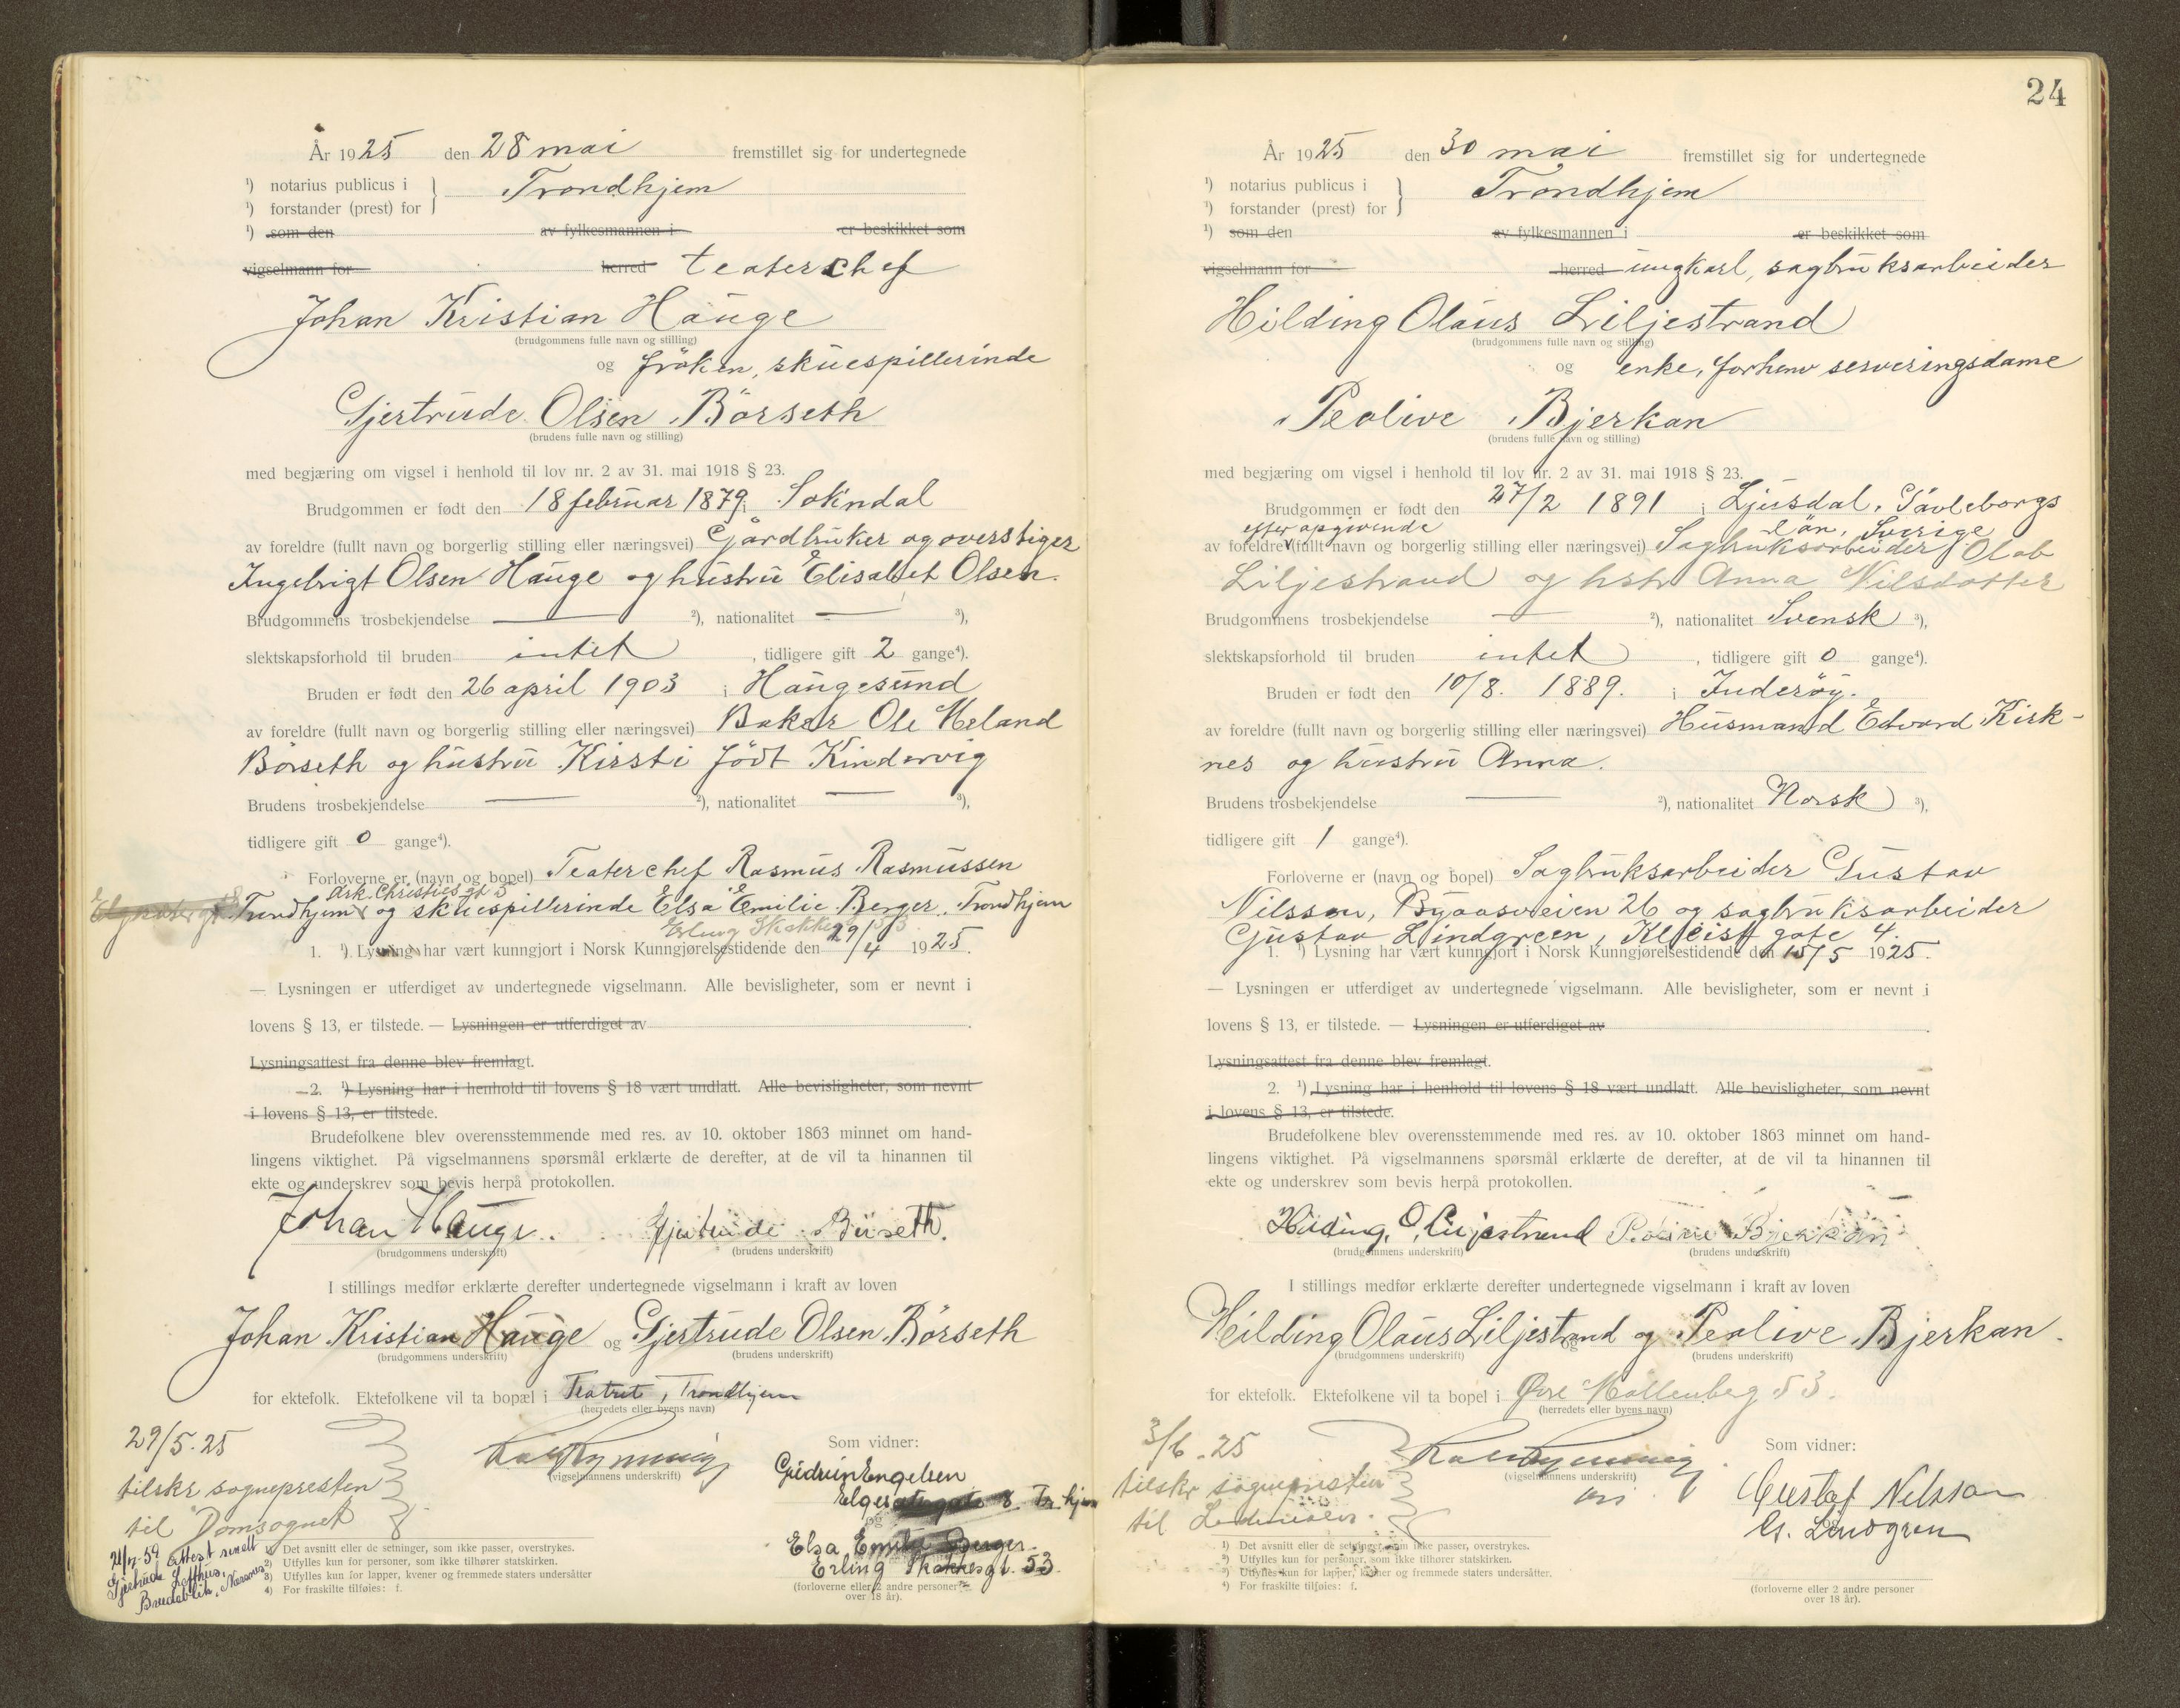 År 1925 den 28 mai fremstillet sig for undertegnede
¹) notarius publicus i } Trondhjem
¹) forstander (prest) for
¹) som den av fylkesmannen i er beskikket som
vigselmann for herred teaterchef
Johan Kristian Hauge
(brudgommens fulle navn og stilling)
og fröken, skuespillerinde
Gjertrude Olsen Börseth
(brudens fulle navn og stilling)
med begjæring om vigsel i henhold til lov nr. 2 av 31. mai 1918 § 23.
Brudgommen er født den 18 februar 1879 i Sokndal
av foreldre (fullt navn og borgerlig stilling eller næringsvei) Gårdbruker og overstiger
Ingebrigt Olsen Hauge og hustru Elisabet Olsen.
Brudgommens trosbekjendelse — ²), nationalitet — ³),
slektskapsforhold til bruden intet, tidligere gift 2 gange⁴).
Bruden er født den 26 april 1903 i Haugesund
av foreldre (fullt navn og borgerlig stilling eller næringsvei) Baker Ole Meland
Börseth og hustru Kirsti født Kindervig
Brudens trosbekjendelse — ²), nationalitet — ³),
tidligere gift 0 gange⁴).
Forloverne er (navn og bopel) Teaterchef Rasmus Rasmussen
Ark. Christies gt 5
Trondhjem og skuespillerinde Elsa Emilie Berger, Trondhjem
Erling Skakkesg 53
1. ¹) Lysning har vært kunngjort i Norsk Kunngjørelsestidende den 29/4 1925.
— Lysningen er utferdiget av undertegnede vigselmann. Alle bevisligheter, som er nevnt i
lovens § 13, er tilstede. — Lysningen er utferdiget av
Lysningsattest fra denne blev fremlagt.
—2. ¹) Lysning har i henhold til lovens § 18 vært undlatt. Alle bevisligheter, som nevnt
i lovens § 13, er tilstede.
Brudefolkene blev overensstemmende med res. av 10. oktober 1863 minnet om hand-
lingens viktighet. På vigselmannens spørsmål erklærte de derefter, at de vil ta hinannen til
ekte og underskrev som bevis herpå protokollen.
Johan Hauge. Gjertrude Börseth.
(brudgommens underskrift) (brudens underskrift)
I stillings medfør erklærte derefter undertegnede vigselmann i kraft av loven
Johan Kristian Hauge og Gjertrude Olsen Börseth
(brudgommens underskrift) (brudens underskrift)
for ektefolk. Ektefolkene vil ta bopæl i Teatret, Trondhjem
(herredets eller byens navn)
29/5.25
tilskr sognepresten
til Domsognet
(vigselmannens underskrift)
Som vidner:
Gudrun Engelsen
Elgesetergate 8 Tr.hjem
og
Elsa Emilie Berger
Erling Skakkesgt. 53
(forloverne eller 2 andre personer
over 18 år).
attest sendt
Gjertrude Lofthus,
¹) Det avsnitt eller de setninger, som ikke passer, overstrykes.
²) Utfylles kun for personer, som ikke tilhører statskirken.
³) Utfylles kun for lapper, kvener og fremmede staters undersåtter
⁴) For fraskilte tilføies: f.
24
År 1925 den 30 mai fremstillet sig for undertegnede
¹) notarius publicus i } Trondhjem
¹) forstander (prest) for
¹) som den av fylkesmannen i er beskikket som
vigselmann for herred ungkarl, sagbruksarbeider
Hilding Olaus Liljestrand
(brudgommens fulle navn og stilling)
og enke, forhenv serveringsdame
Peolive Bjerkan
(brudens fulle navn og stilling)
med begjæring om vigsel i henhold til lov nr. 2 av 31. mai 1918 § 23.
Brudgommen er født den 27/2 1891 i Ljusdal, Gävleborgs
efter opgivende län, Sverige
av foreldre (fullt navn og borgerlig stilling eller næringsvei) Sagbruksarbeider Olab
Liljestrand og hstr Anna Nilsdotter
Brudgommens trosbekjendelse — ²), nationalitet Svensk ³),
slektskapsforhold til bruden intet, tidligere gift 0 gange⁴).
Bruden er født den 10/8. 1889. i Inderöy.
av foreldre (fullt navn og borgerlig stilling eller næringsvei) Husmand Edvard Kirk-
nes og hustru Anna.
Brudens trosbekjendelse — ²), nationalitet Norsk ³),
tidligere gift 1 gange⁴).
Forloverne er (navn og bopel) Sagbruksarbeider Gustav
Nilsson, Byaasveien 26 og sagbruksarbeider
Gustav Lindgreen, Kleist gate 4.
1. ¹) Lysning har vært kunngjort i Norsk Kunngjørelsestidende den 15/5 1925.
— Lysningen er utferdiget av undertegnede vigselmann. Alle bevisligheter, som er nevnt i
lovens § 13, er tilstede. — Lysningen er utferdiget av
Lysningsattest fra denne blev fremlagt.
2. ¹) Lysning har i henhold til lovens § 18 vært undlatt. Alle bevisligheter, som nevnt
i lovens § 13, er tilstede.
Brudefolkene blev overensstemmende med res. av 10. oktober 1863 minnet om hand-
lingens viktighet. På vigselmannens spørsmål erklærte de derefter, at de vil ta hinannen til
ekte og underskrev som bevis herpå protokollen.
Hilding, O, Liljestrand Peolive Bjerkan
(brudgommens underskrift) (brudens underskrift)
I stillings medfør erklærte derefter undertegnede vigselmann i kraft av loven
Hilding Olaus Liljestrand og Peolive Bjerkan.
(brudgommens underskrift) (brudens underskrift)
for ektefolk. Ektefolkene vil ta bopel i Øvre Møllenberg 53.
(herredets eller byens navn)
3/6.25
tilskr sognepresten
til
(vigselmannens underskrift)
Som vidner:
Gustaf Nilsson
og
G. Lindgren
(forloverne eller 2 andre personer
over 18 år).
¹) Det avsnitt eller de setninger, som ikke passer, overstrykes.
²) Utfylles kun for personer, som ikke tilhører statskirken.
³) Utfylles kun for lapper, kvener og fremmede staters undersåtter.
⁴) For fraskilte tilføies: f.